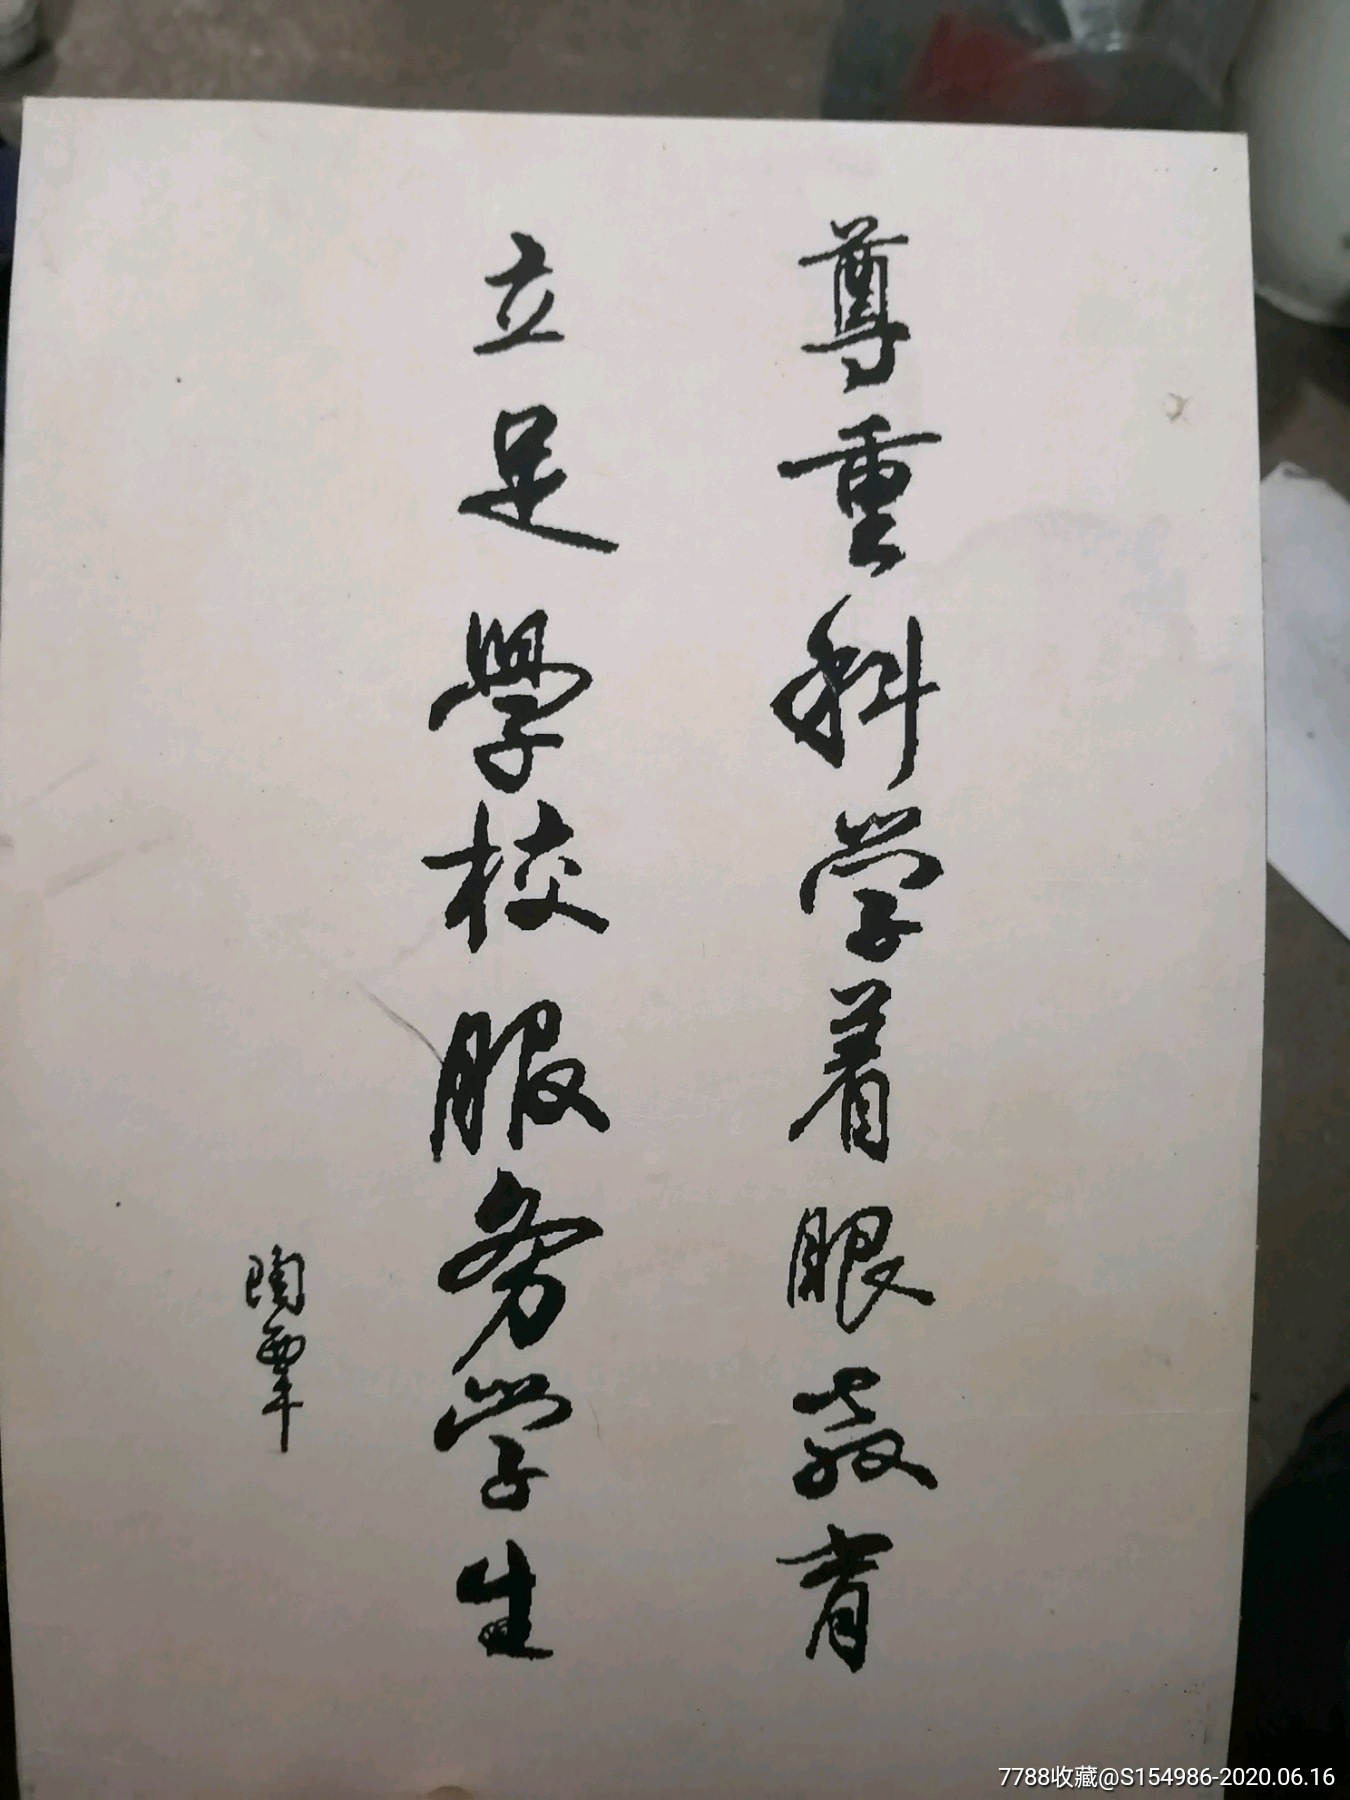 尊重科学着眼教育
立足學校服务学生
陶覃
7788收藏@S154986-2020.06.16